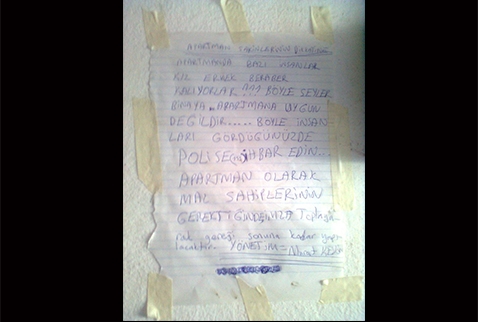 APARTMAN
APARTMANDA BAZI İNSANLAR
KIZ ERKEK BERABER
KALIYORLAR ??? BÖYLE ŞEYLER
BİNAYA .. APARTMANA UYGUN
DEĞİLDİR...... BÖYLE İNSAN
LARI GÖRDÜĞÜNÜZDE
POLİSE İHBAR EDİN...
APARTMAN OLARAK
MAL SAHİPLERİNİN
GEREKTİĞİNDE
gereği sonuna kadar
YÖNETİM =